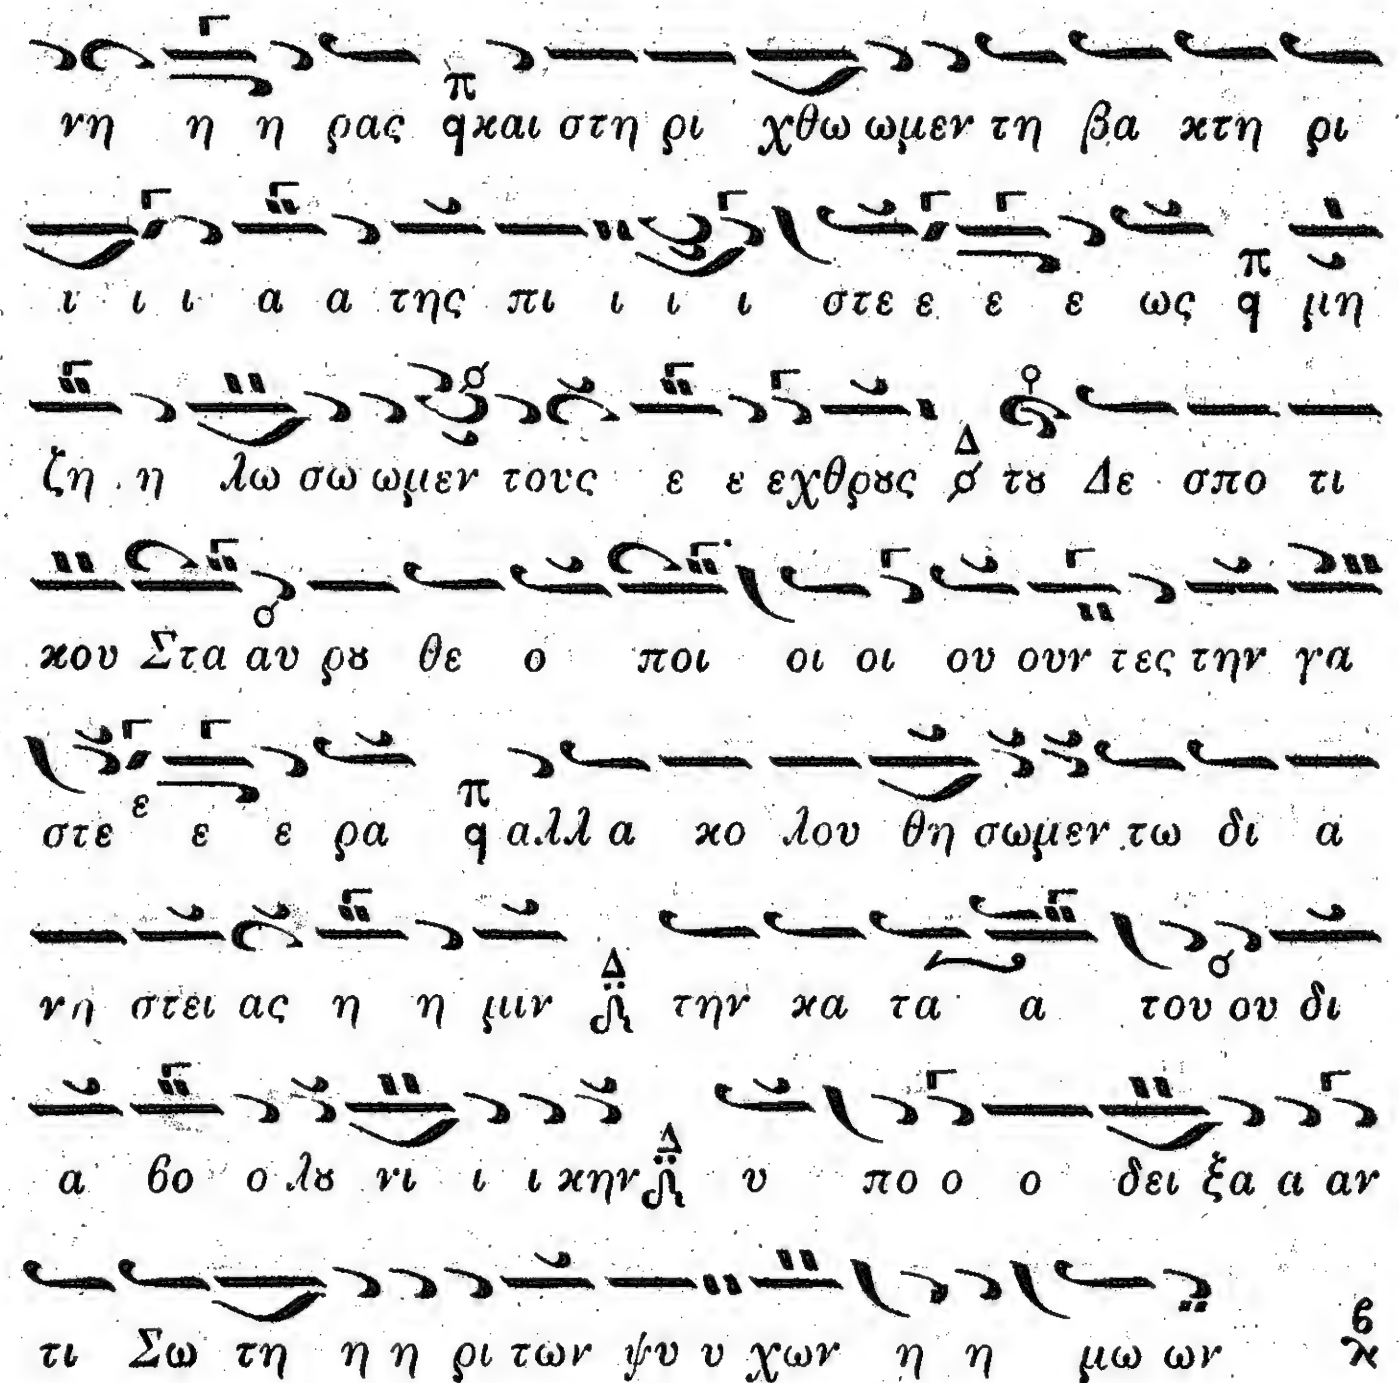 νη η η ρας π q και στη ρι χθω ωμεν τη βα κτη ρι
ι ι ι α α της πι ι ι ι στε ε ε ε ως π q μη
ζη η λω σω ωμεν τους ε ε εχθρȣς Δ τȣ Δε σπο τι
κου Στα αυ ρȣ θε ο ποι οι οι ου ουν τες την γα
στε ε ε ε ρα π q αλλ α κο λου θη σωμεν τω δι α
νη στει ας η η μιν Δ την κα τα α του ου δι
α βο ο λȣ νι ι ι κην Δ υ πο ο ο δει ξα α αν
τι Σω τη η η ρι των ψυ υ χων η η μω ων ϐ